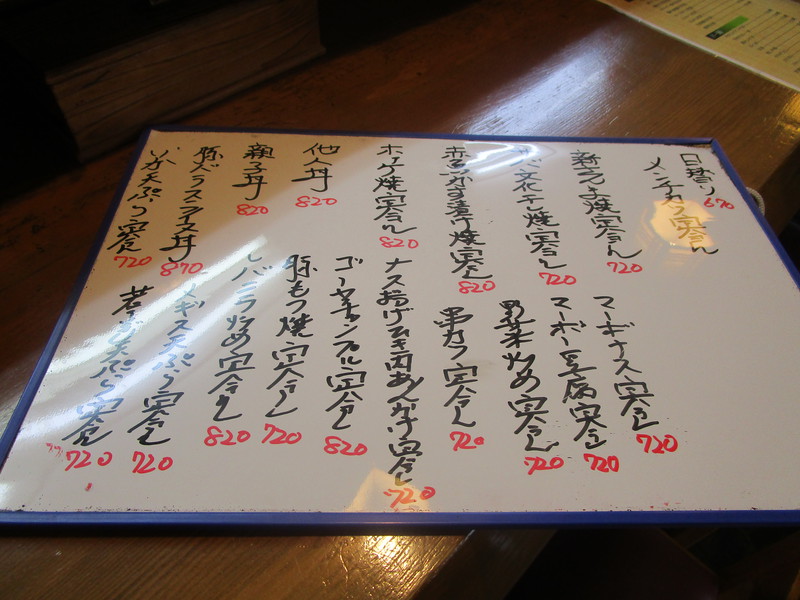 日替り 670
メンチカツ定食
新さんま焼定食 720
サバ文化干し焼定食 720
赤魚かす漬け焼定食 820
ホッケ焼定食 820
他人丼 820
親子丼 820
豚バラスライス丼 870
いか天ぷら定食 720
マーボナス定食 720
マーボー豆腐定食 720
野菜炒め定食 720
串カツ定食 720
ナスあげひき肉あんかけ定食 720
ゴーヤチャンプル定食 820
豚もつ焼定食 720
レバニラ炒め定食 820
メギス天ぷら定食 720
天ぷら定食 720